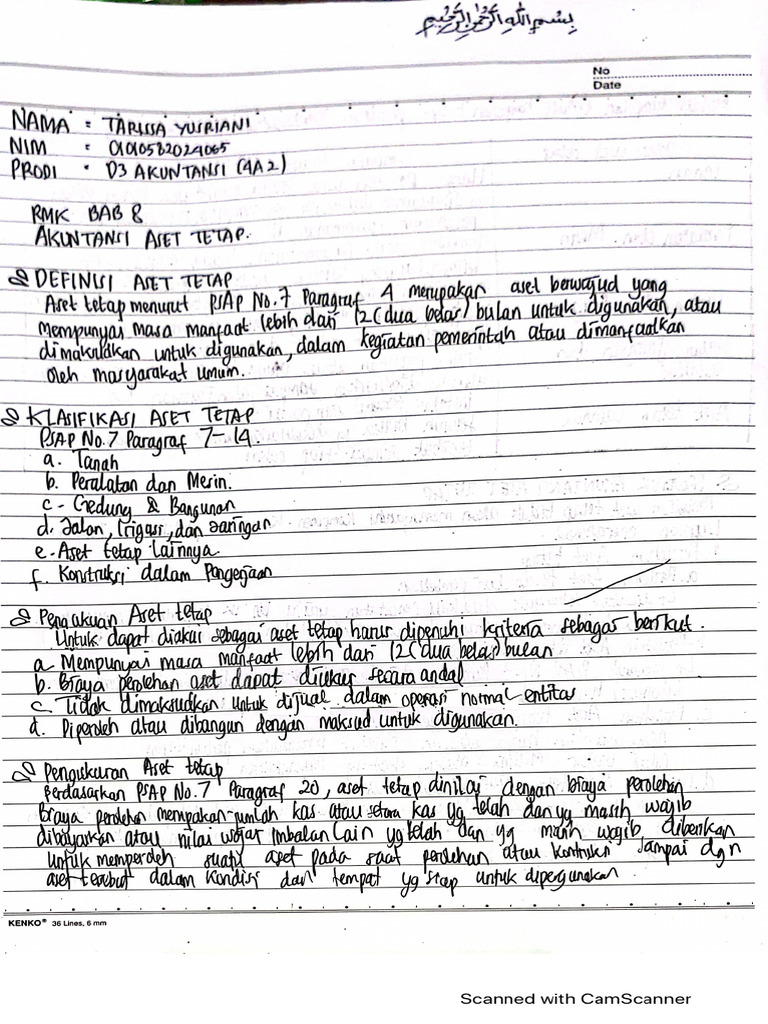 بِسْمِ اللهِ الرَّحْمٰنِ الرَّحِيْمِ
No
Date
NAMA : TARISSA YUSRIANI
NIM : 01010582024065
PRODI : D3 AKUNTANSI (4A2)
RMK BAB 8
AKUNTANSI ASET TETAP.
DEFINISI ASET TETAP
Aset tetap menurut PSAP No.7 Paragraf 4 merupakan aset berwujud yang
mempunyai masa manfaat lebih dari 12 (dua belas) bulan untuk digunakan, atau
dimaksudkan untuk digunakan, dalam kegiatan pemerintah atau dimanfaatkan
oleh masyarakat umum.
KLASIFIKASI ASET TETAP
PSAP No.7 Paragraf 7-14
a. Tanah
b. Peralatan dan Mesin.
c. Gedung & Bangunan
d. Jalan, Irigasi, dan Jaringan
e. Aset tetap lainnya
f. Konstruksi dalam Pengerjaan
Pengakuan Aset tetap
Untuk dapat diakui sebagai aset tetap harus dipenuhi kriteria sebagai berikut.
a. Mempunyai masa manfaat lebih dari 12 (dua belas) bulan
b. Biaya perolehan aset dapat diukur secara andal
c. Tidak dimaksudkan untuk dijual dalam operasi normal entitas
d. Diperoleh atau dibangun dengan maksud untuk digunakan.
Pengukuran Aset tetap
Berdasarkan PSAP No.7 Paragraf 20, aset tetap dinilai dengan biaya perolehan
Biaya perolehan merupakan jumlah kas atau setara kas yg telah dan yg masih wajib
dibayarkan atau nilai wajar imbalan lain yg telah dan yg masih wajib diberikan
untuk memperoleh suatu aset pada saat perolehan atau kontruksi sampai dgn
aset tersebut dalam kondisi dan tempat yg siap untuk dipergunakan
KENKO® 36 Lines, 6 mm
Scanned with CamScanner